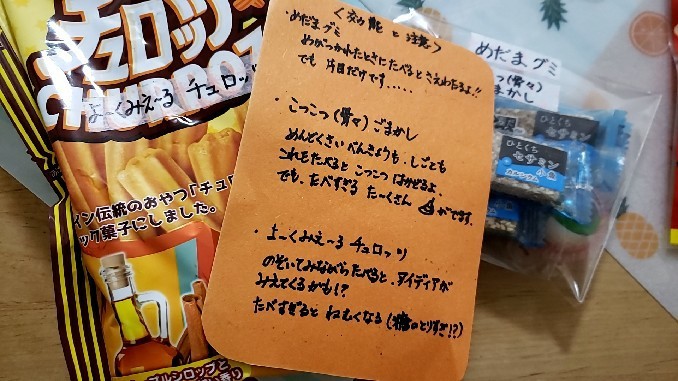 チュロッツ
CHURRO
よ〜くみえ〜る チュロッツ
イン伝統のおやつ「チュロ
ック菓子にしました。
プルシロップと
〈効能と注意〉
・めだまグミ
めがつかれたときにたべるとさえわたるよ!!
でも 片目だけです.....
・こつこつ(骨々)ごまかし
めんどくさい べんきょうも、しごとも
これをたべると こつこつ はかどるよ。
でも、たべすぎる た〜くさん ができます。
・よ〜くみえ〜る チュロッツ
のぞいてみながらたべると、アイディアが
みえてくるかも!?
たべすぎると ねむくなる(糖のとりすぎ!?)
めだまグミ
つ(骨々)
まかし
ひとくち
セサミン
小魚
カルシウム
ひとくち
セサミン